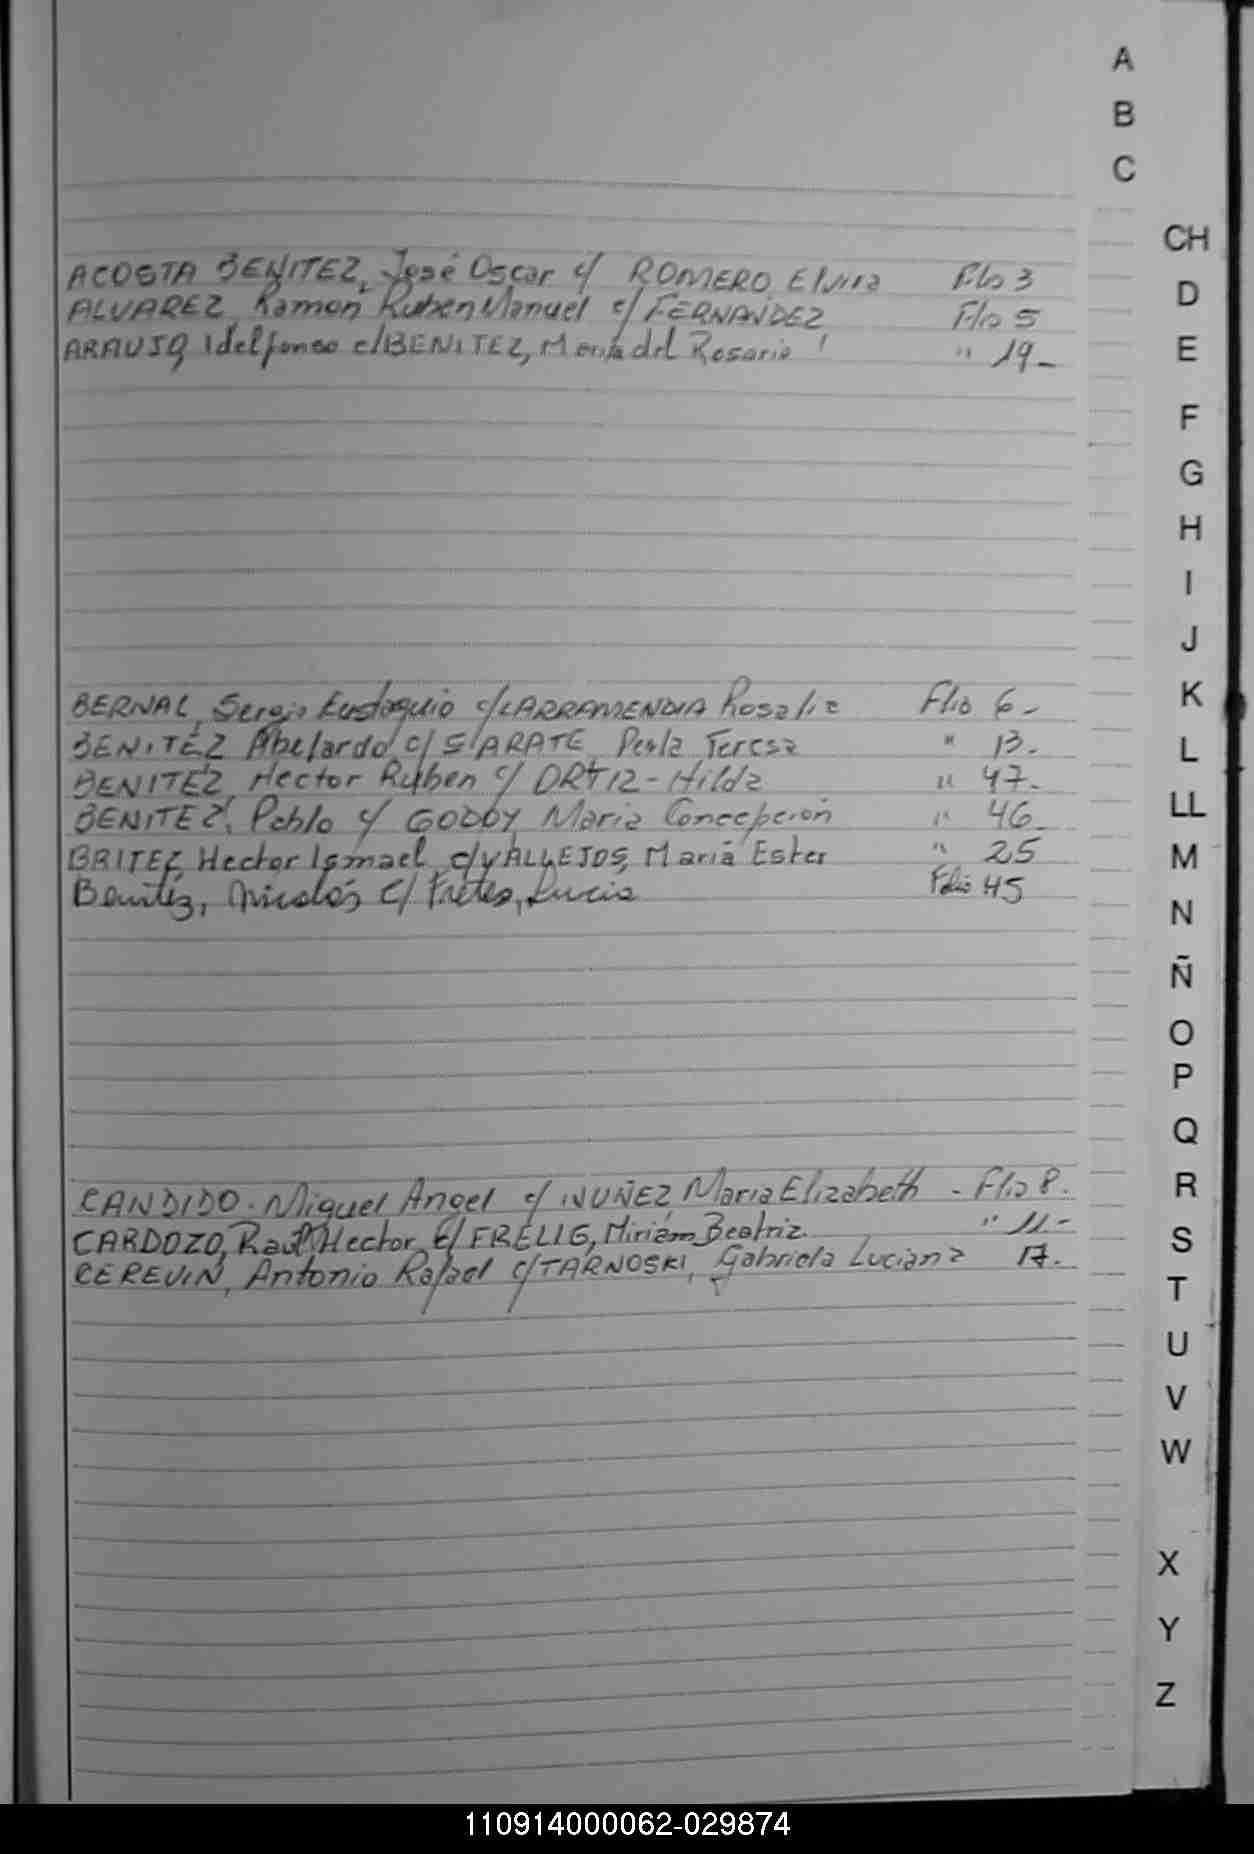 A
B
C
CH
D
E
F
G
H
I
J
K
L
LL
M
N
Ñ
O
P
Q
R
S
T
U
V
W
X
Y
Z
ACOSTA BENITEZ, José Oscar c/ ROMERO Elvira Flio 3
ALVAREZ Ramon Ruben Manuel c/ FERNANDEZ Flio 5
ARAUJO, Idelfonso c/BENITEZ, María del Rosario " 19-
BERNAL, Sergio Eustaquio c/LARRAMENDIA Rosalia Flio 6-
BENITEZ Abelardo c/ Perla Teresa " 13.
BENITEZ, Hector Ruben c/ ORTIZ-Hilda " 47-
BENITEZ, Pablo c/ GODOY Maria Concepcion " 46
BRITEZ, Hector Ismael c/VALLEJOS, María Ester " 25
Benitez, Nicolás c/ Fretes, Lucia Folio 45
CANDIDO. Miguel Angel c/ NUÑEZ Maria Elizabeth - Flio 8.
CARDOZO, Raúl Hector c/ FRELIG, Miriam Beatriz. " 11-
CEREVIN, Antonio Rafael c/TARNOSKI, Gabriela Luciana 17.
110914000062-029874